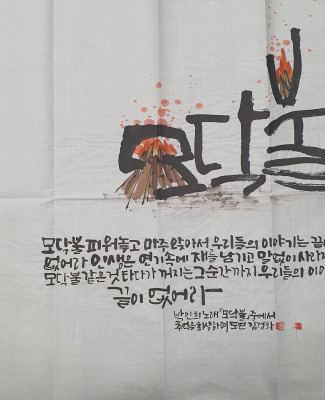 모닥불
모닥불 피워놓고 마주 앉아서 우리들의 이야기는 끝이
없어라 인생은 연기속에 재를 남기고 말없이 사라지
모닥불 같은것 타다가 꺼지는 그순간까지 우리들의 이야
끝이 없어라
박인희 노래 '모닥불' 중에서
추억을 회상하며 도현 김경화